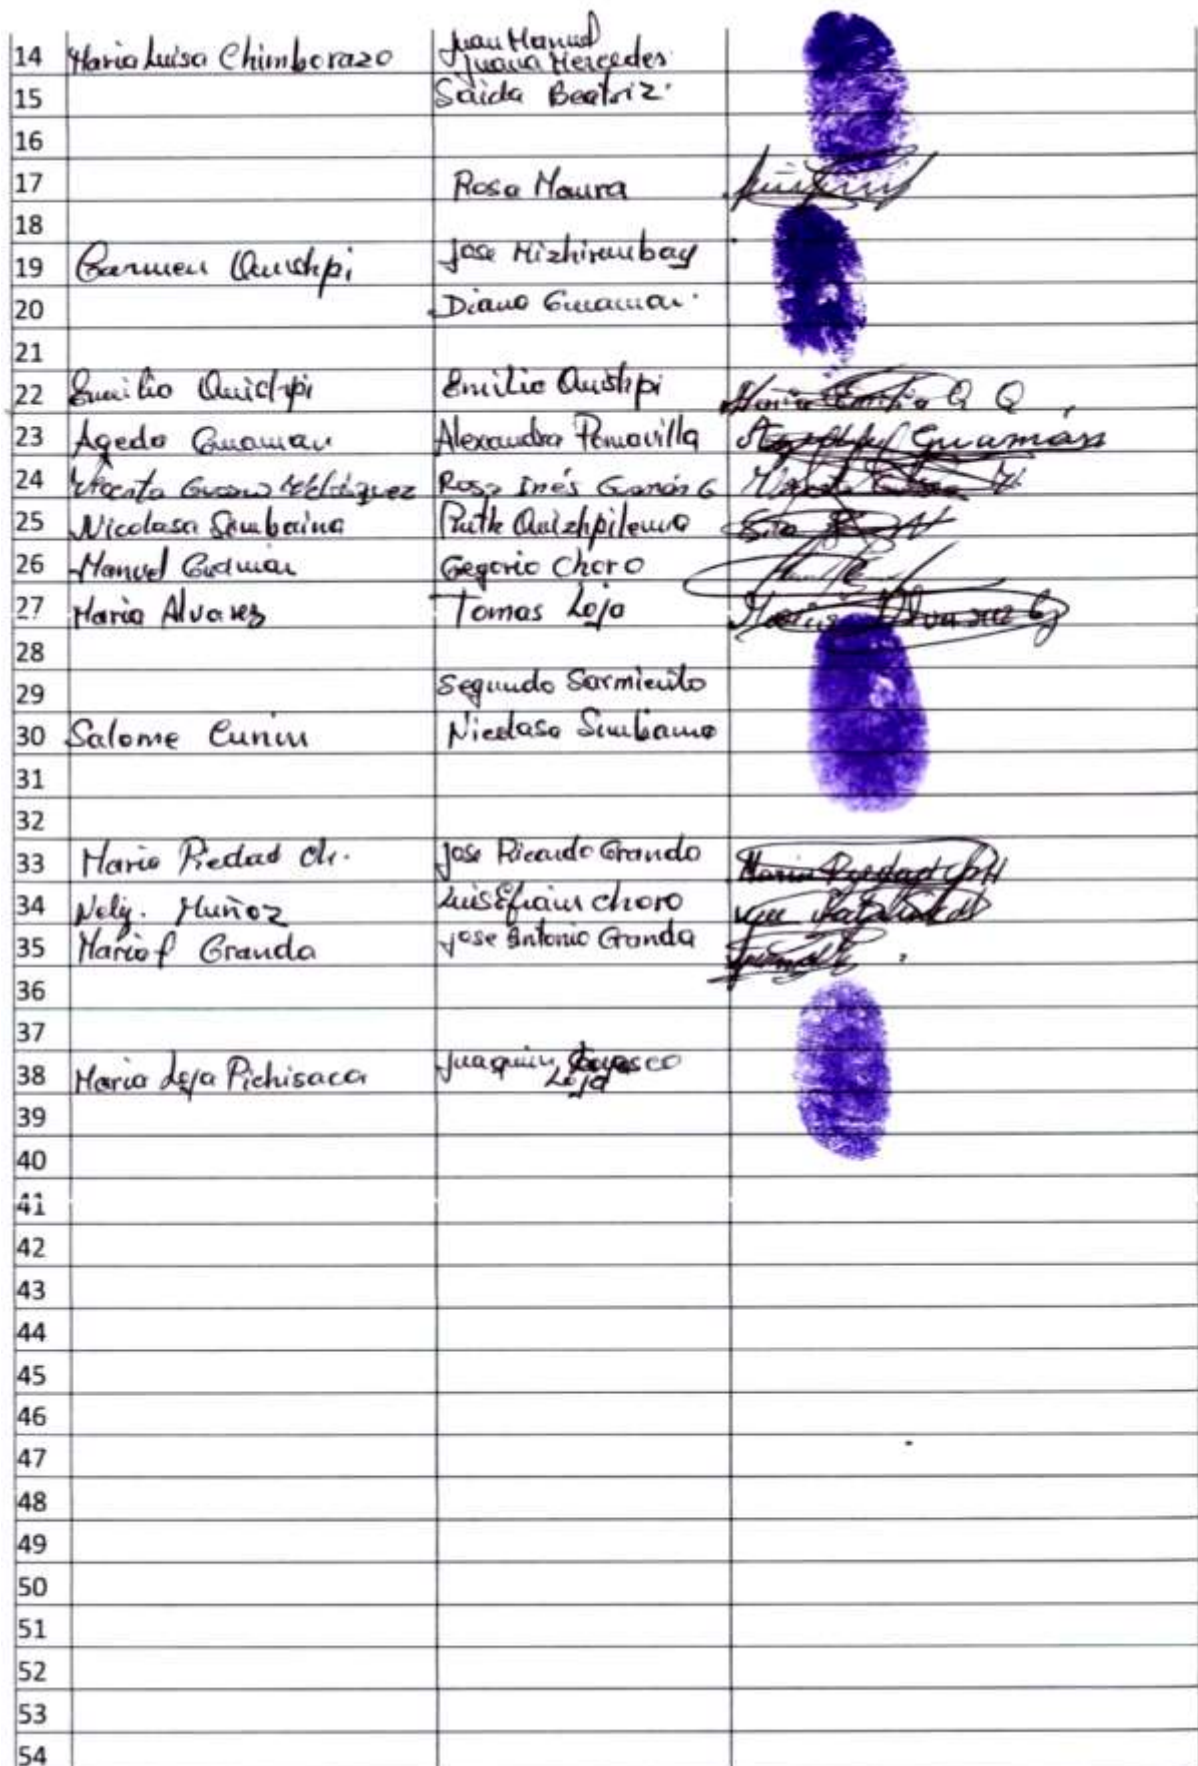 14 Maria Luisa Chimborazo Juan Manuel
Juana Mercedes
15 Saida Beatriz
16
17 Rosa Maura
18
19 Carmen Quishpi Jose Mizhirumbay
20 Diana Guaman
21
22 Emilio Quishpi Emilio Quishpi Q Q
23 Agedo Guaman Alexandra Pomavilla Guamán
24 Rosa Inés G
25 Nicolasa Simbaina Ruth Quizhpilema
26 Manuel Guaman Gegorio Choro
27 Maria Alvarez Tomas Loja Maria Alvarez
28
29 Segundo Sarmiento
30 Salome Cunin Nicolasa Simbaina
31
32
33 Maria Piedad Ch. Jose Ricardo Granda Maria Piedad
34 Nely. Muñoz Luis Efrain Choro
35 Maria Granda Jose Antonio Granda
36
37
38 Maria Loja Pichisaca Juaquin
Loja
39
40
41
42
43
44
45
46
47
48
49
50
51
52
53
54